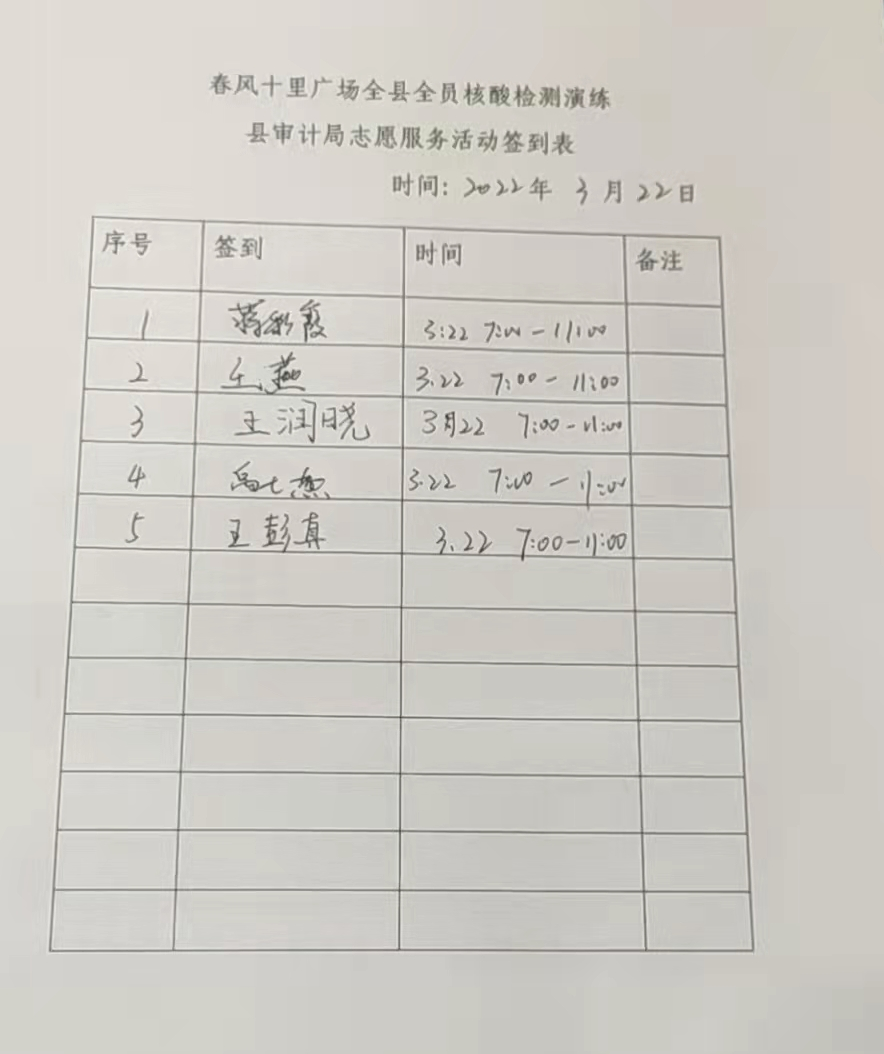 春风十里广场全县全员核酸检测演练
县审计局志愿服务活动签到表
时间：2022年 3月22日
序号 签到 时间 备注
1 蒋彩霞 3:22 7:00-11:00
2 王燕 3.22 7:00-11:00
3 王润晓 3月22 7:00-11:00
4 3.22 7:00-11:00
5 王彭真 3.22 7:00-11:00